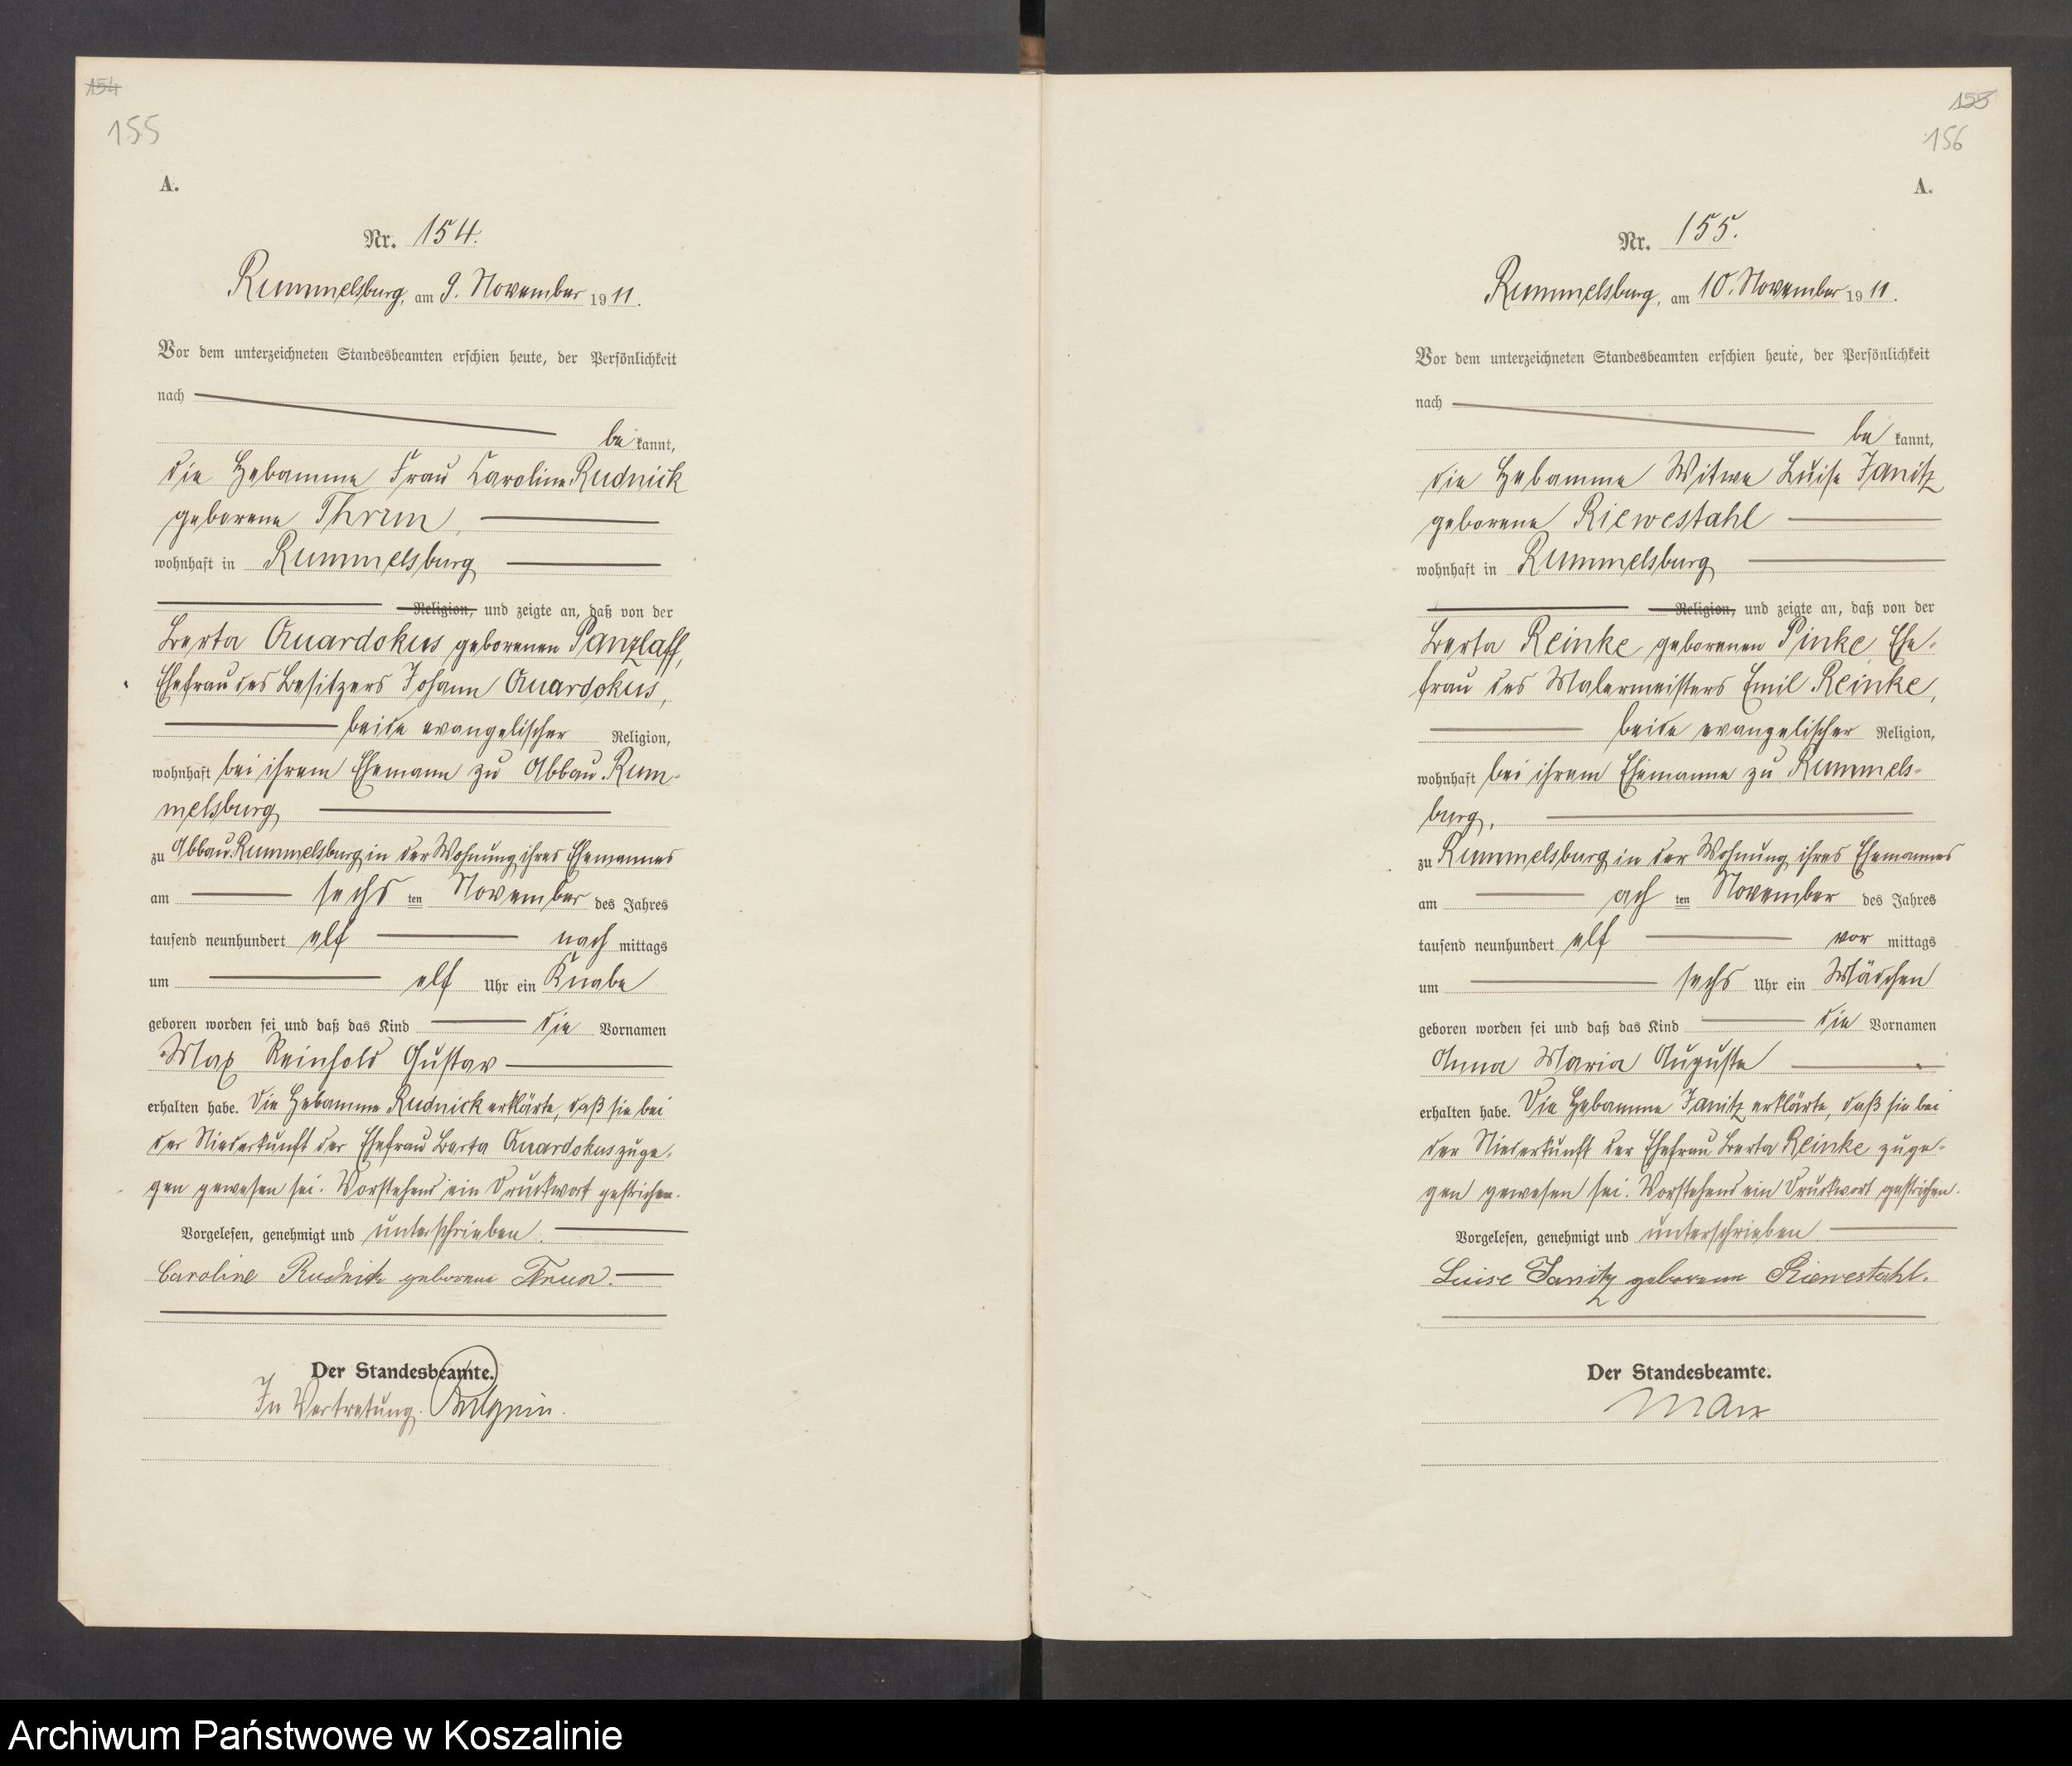 154
155
A.
Nr. 154.
Rummelsburg, am 9. November 1911.
Vor dem unterzeichneten Standesbeamten erschien heute, der Persönlichkeit
nach
be kannt,
die Hebamme Frau Caroline Rudnick
geborene Thrun,
wohnhaft in Rummelsburg
Religion, und zeigte an, daß von der
Berta Quardokus geborenen Panzlaff,
Ehefrau des Besitzers Johann Quardokus,
beide evangelischer Religion,
wohnhaft bei ihrem Ehemann zu Abbau Rum-
melsburg
zu Abbau Rummelsburg in der Wohnung ihres Ehemannes
am sechs ten November des Jahres
tausend neunhundert elf nach mittags
um elf Uhr ein Knabe
geboren worden sei und daß das Kind die Vornamen
Max Reinhold Gustav
erhalten habe. Die Hebamme Rudnick erklärte, daß sie bei
der Niederkunft der Ehefrau Berta Quardokus zuge-
gen gewesen sei. Vorstehend ein Druckwort gestrichen.
Vorgelesen, genehmigt und unterschrieben.
Caroline Rudnick geborene Trun.
Der Standesbeamte.
In Vertretung.
155
156
A.
Nr. 155.
Rummelsburg, am 10. November 1911.
Vor dem unterzeichneten Standesbeamten erschien heute, der Persönlichkeit
nach
be kannt,
die Hebamme Witwe Luise Janitz
geborene Riewestahl
wohnhaft in Rummelsburg
Religion, und zeigte an, daß von der
Berta Reinke geborenen Pinke Ehe-
frau des Malermeisters Emil Reinke,
beide evangelischer Religion,
wohnhaft bei ihrem Ehemanne zu Rummels-
burg,
zu Rummelsburg in der Wohnung ihres Ehemannes
am ach ten November des Jahres
tausend neunhundert elf vor mittags
um sechs Uhr ein Mädchen
geboren worden sei und daß das Kind die Vornamen
Anna Maria Auguste
erhalten habe. Die Hebamme Janitz erklärte, daß sie bei
der Niederkunft der Ehefrau Berta Reinke zuge-
gen gewesen sei. Vorstehend ein Druckwort gestrichen.
Vorgelesen, genehmigt und unterschrieben
Luise Janitz geborene Riewestahl.
Der Standesbeamte.
Archiwum Państwowe w Koszalinie